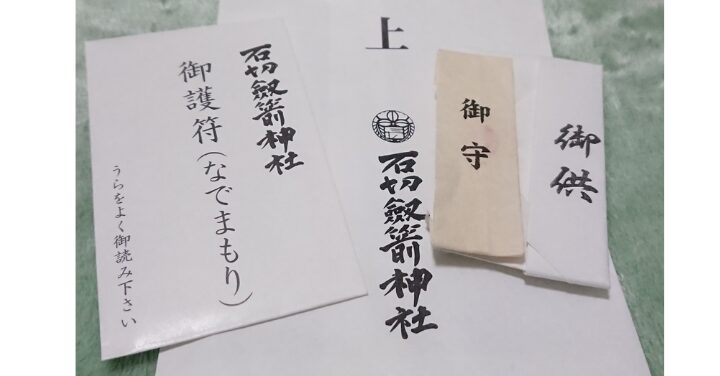 石切劔箭神社
御護符(なでまもり)
うらをよく御読み下さい
上
石切劔箭神社
御守
御供